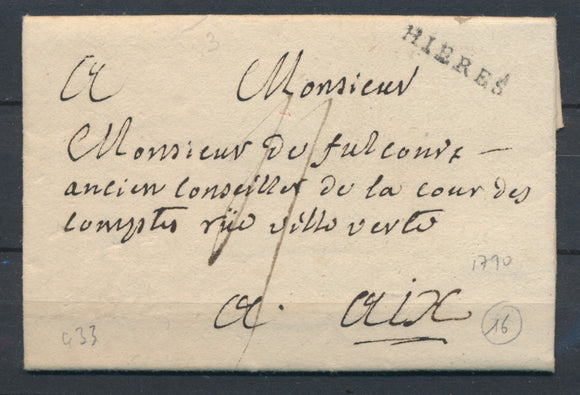 3
HIERES
A Monsieur
Monsieur de fulconis
ancien Conseiller de la cour des
comptes rüe ville verte
1790
a. aix
16
433